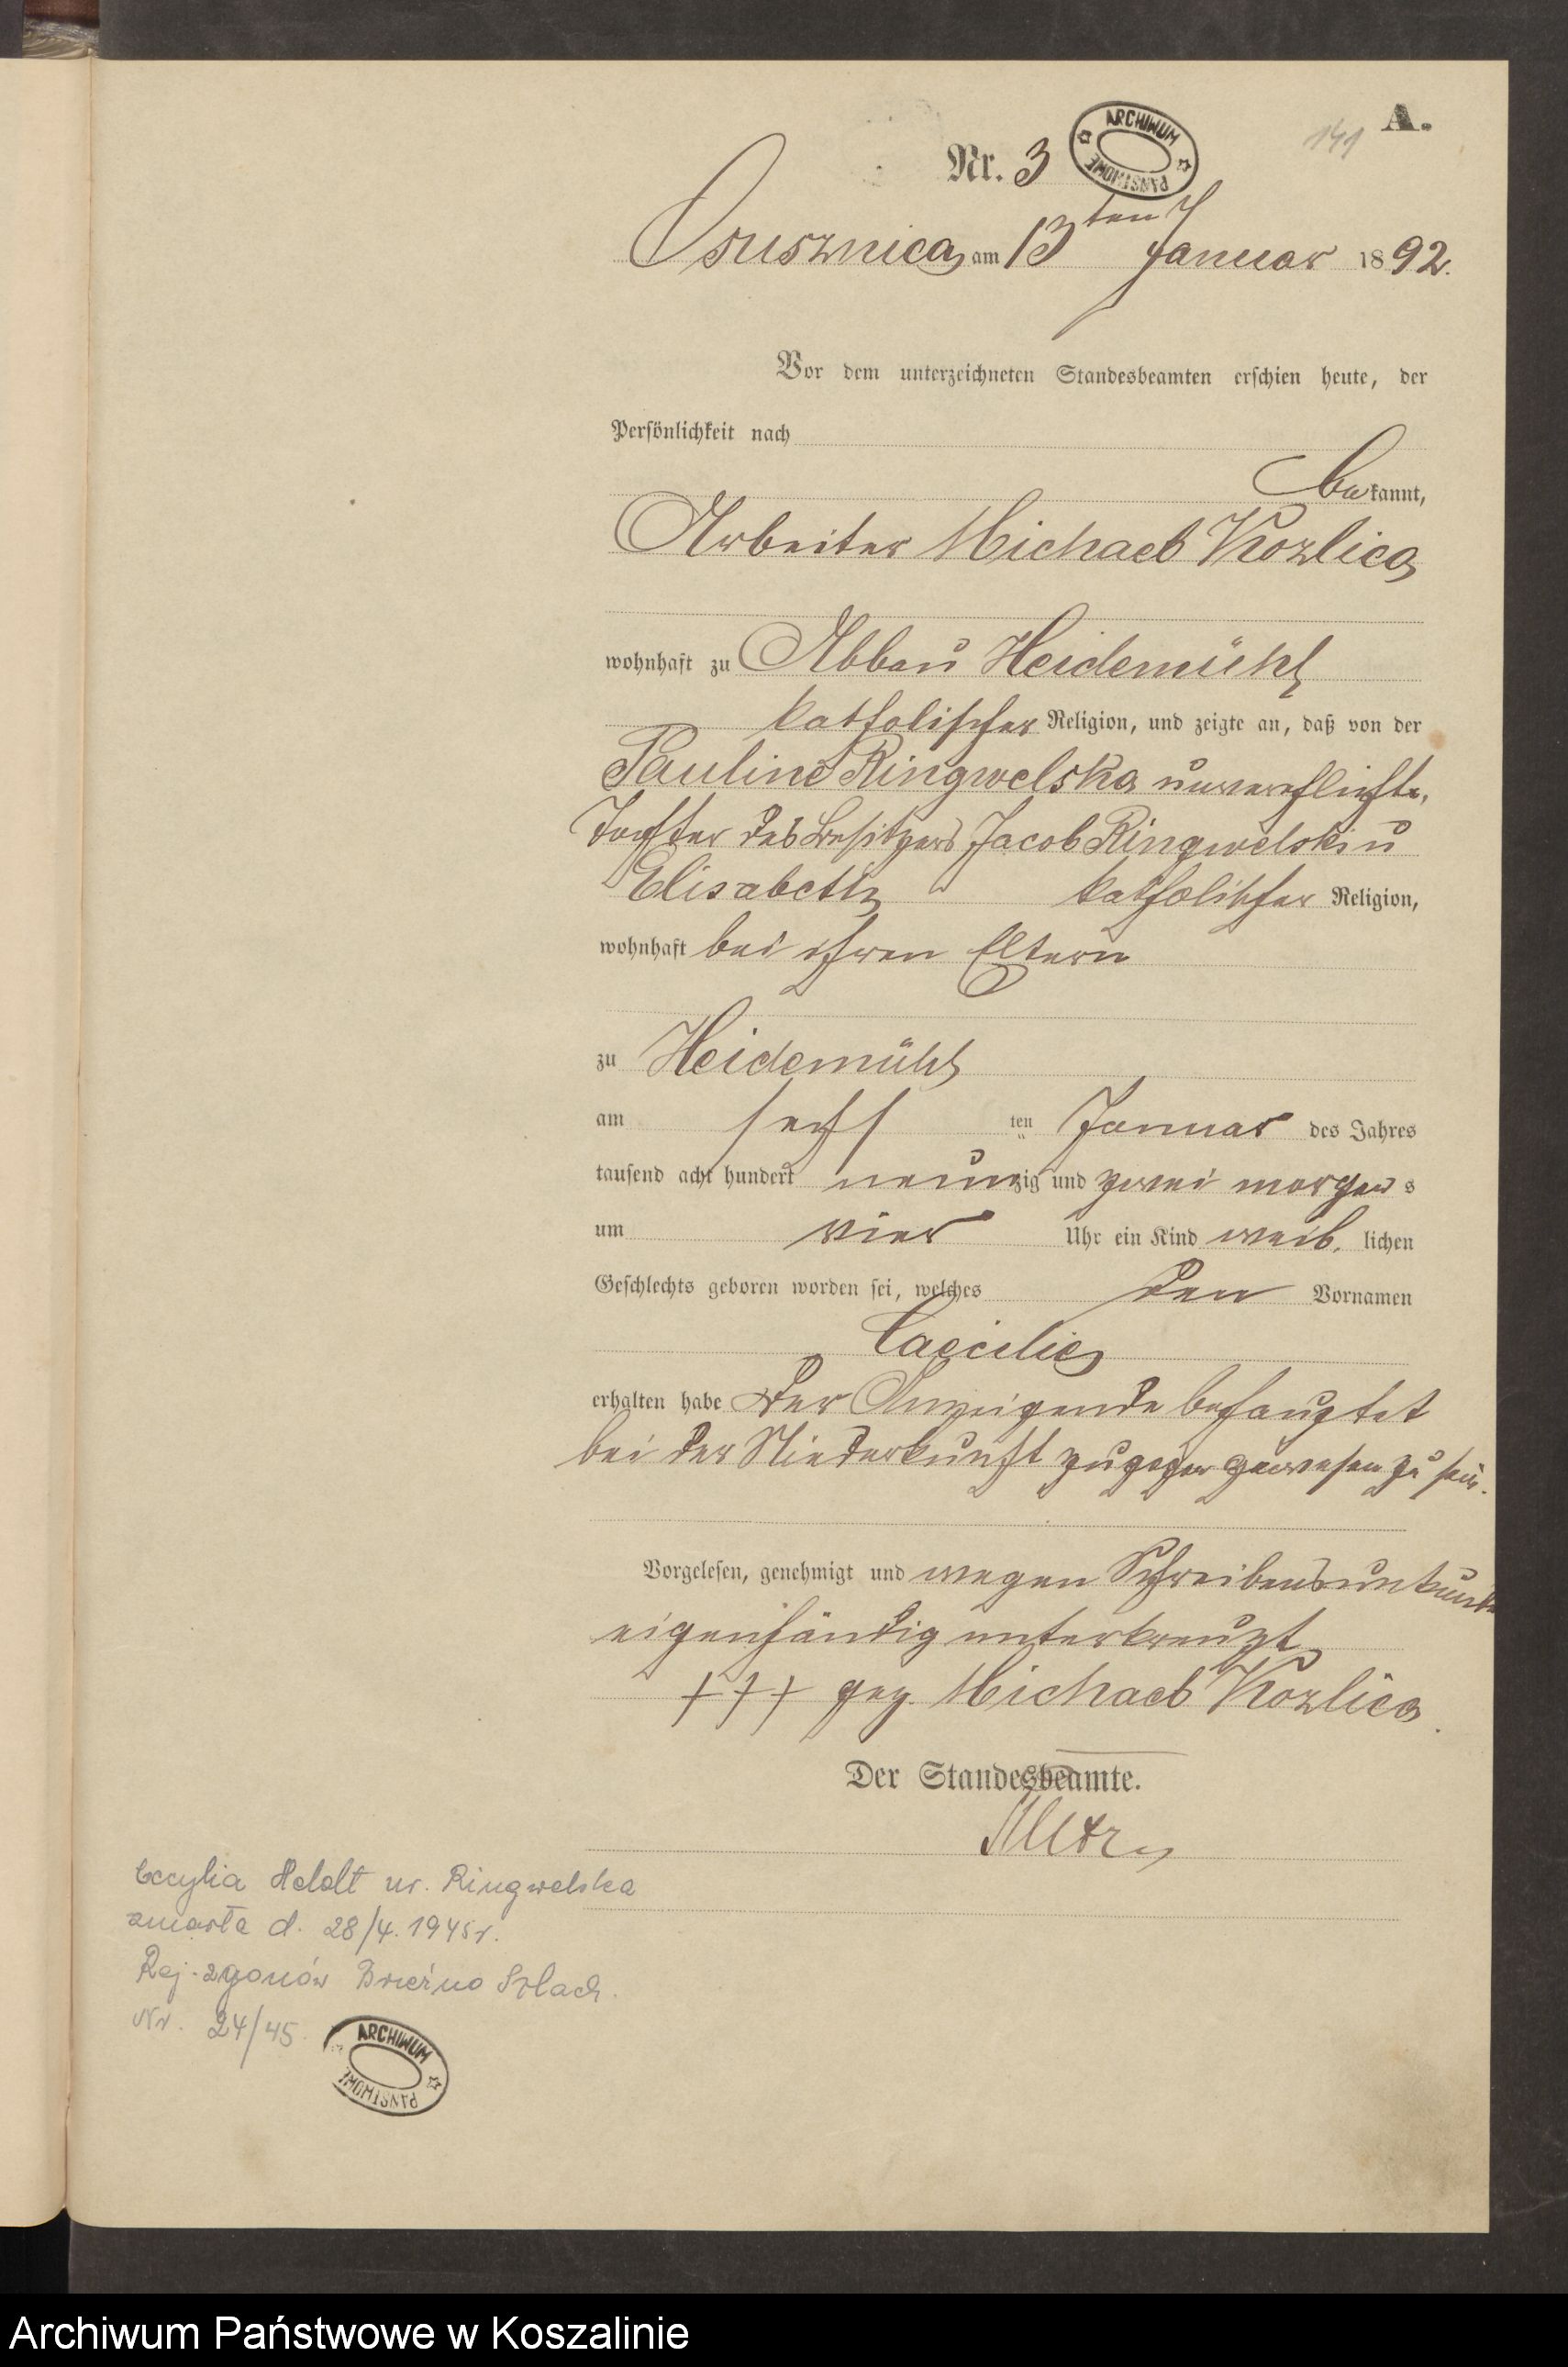 A.
141
Nr. 3
ARCHIWUM PAŃSTWOWE
Osusznica, am 13ten Januar 1892.
Vor dem unterzeichneten Standesbeamten erschien heute, der
Persönlichkeit nach
bekannt,
Arbeiter Michael Kozlica
wohnhaft zu Abbau Heidemühl
katholischer Religion, und zeigte an, daß von der
Pauline Ringwelska unverehlichte,
Tochter des Besitzers Jacob Ringwelski u
Elisabeth katholischer Religion,
wohnhaft bei ihren Eltern
zu Heidemühl
am sechsten Januar des Jahres
tausend acht hundert neunzig und zwei morgens
um vier Uhr ein Kind weib. lichen
Geschlechts geboren worden sei, welches den Vornamen
Caecilie
erhalten habe Der Anzeigende behauptet
bei der Niederkunft zugegen gewesen zu sein.
Vorgelesen, genehmigt und wegen Schreibensunkunde
eigenhändig unterkreuzt
+++ gez. Michael Kozlica
Der Standesbeamte.
Cecylia Heldt ur. Ringwelska
zmarła d. 28/4. 1945r.
Rej. zgonów Brzeźno Szlach.
Nr. 24/45.
ARCHIWUM PAŃSTWOWE
Archiwum Państwowe w Koszalinie